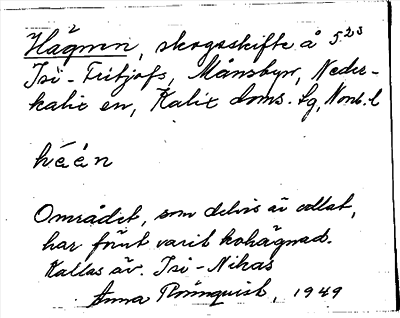 Hägnen, skogsskifte å 5²³
Isi-Fritjofs, Månsbyn, Neder-
kalix sn, Kalix doms. lg, Norrb. l
hèén
Området, som delvis är odlat,
har förut varit kohägnad.
Kallas äv. Isi-Nikas
Anna Rönnquist, 1949